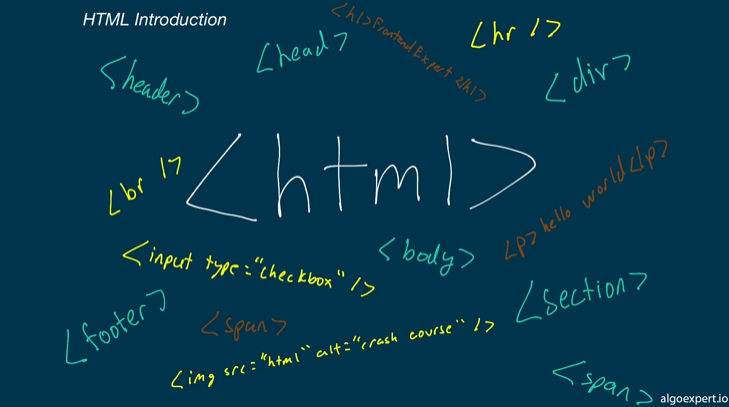 HTML Introduction
<h1>FrontendExpert </h1>
<hr />
<head>
<header>
<div>
<br />
<html>
<p>hello world</p>
<input type="checkbox" />
<body>
<section>
<footer>
<span>
<img src="html" alt="crash course" />
<span>
algoexpert.io